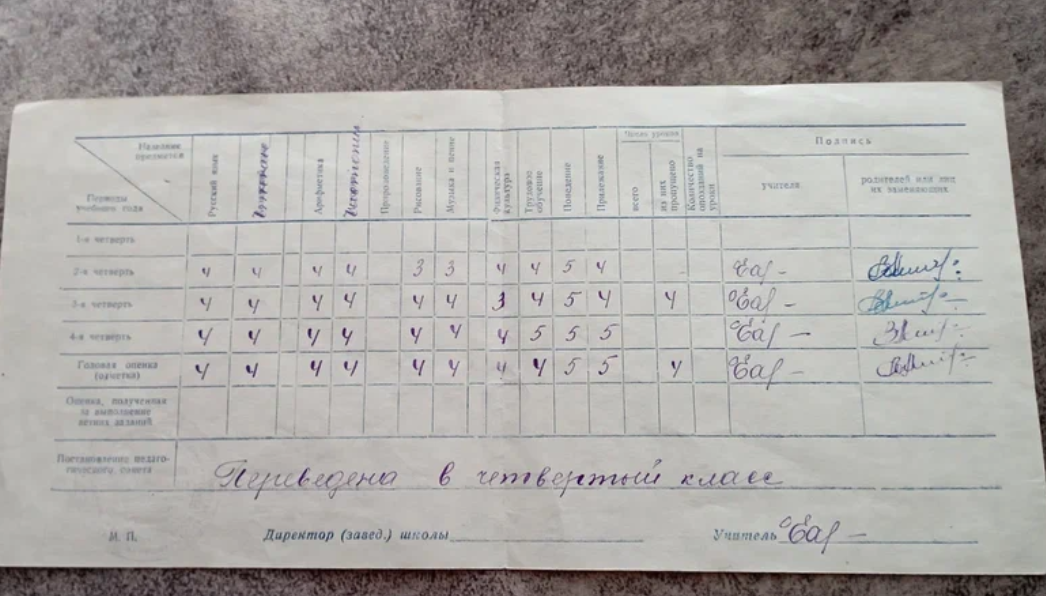 Название предмета
Периоды учебного года
Русский язык
Чтение
Арифметика
История
Природоведение
Рисование
Музыка и пение
Физическая культура
Трудовое обучение
Поведение
Прилежание
Число уроков
всего
из них пропущено
Количество опозданий на уроки
Подпись
учителя
родителей или лиц их заменяющих
1-я четверть
2-я четверть 4 4 4 4 3 3 4 4 5 4
3-я четверть 4 4 4 4 4 4 3 4 5 4 4
4-я четверть 4 4 4 4 4 4 4 5 5 5
Годовая оценка (отметка) 4 4 4 4 4 4 4 4 5 5 4
Оценка, полученная
за выполнение
летних заданий
Постановление педаго-
гического совета
Переведена в четвертый класс
М. П. Директор (завед.) школы Учитель